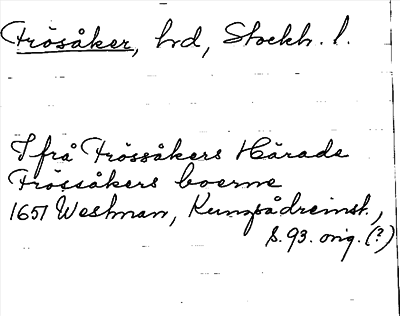 Frösåker, hd, Stockh. l.
Ifrå Frössåkers Härade
Frössåkers boerne
1651 Westman, Kungsådreinst.,
S. 93. orig. (?)